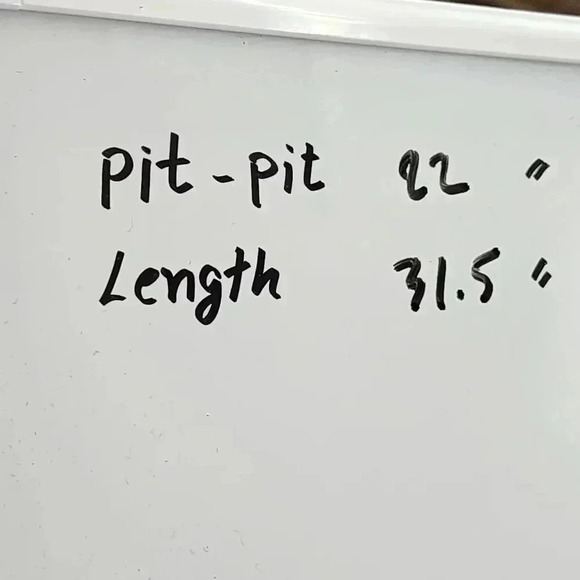 Pit-pit 22 "
Length 31.5 "